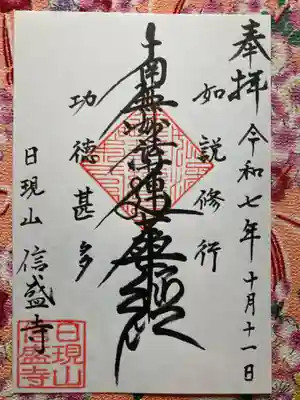 奉拝 令和七年十月十一日
如説修行
南無妙法蓮華経
功徳甚多
日現山 信盛寺
日現山
信盛寺